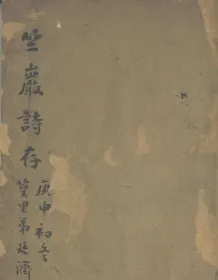 竺巖詩存
庚申初冬
篁里弟廷濟